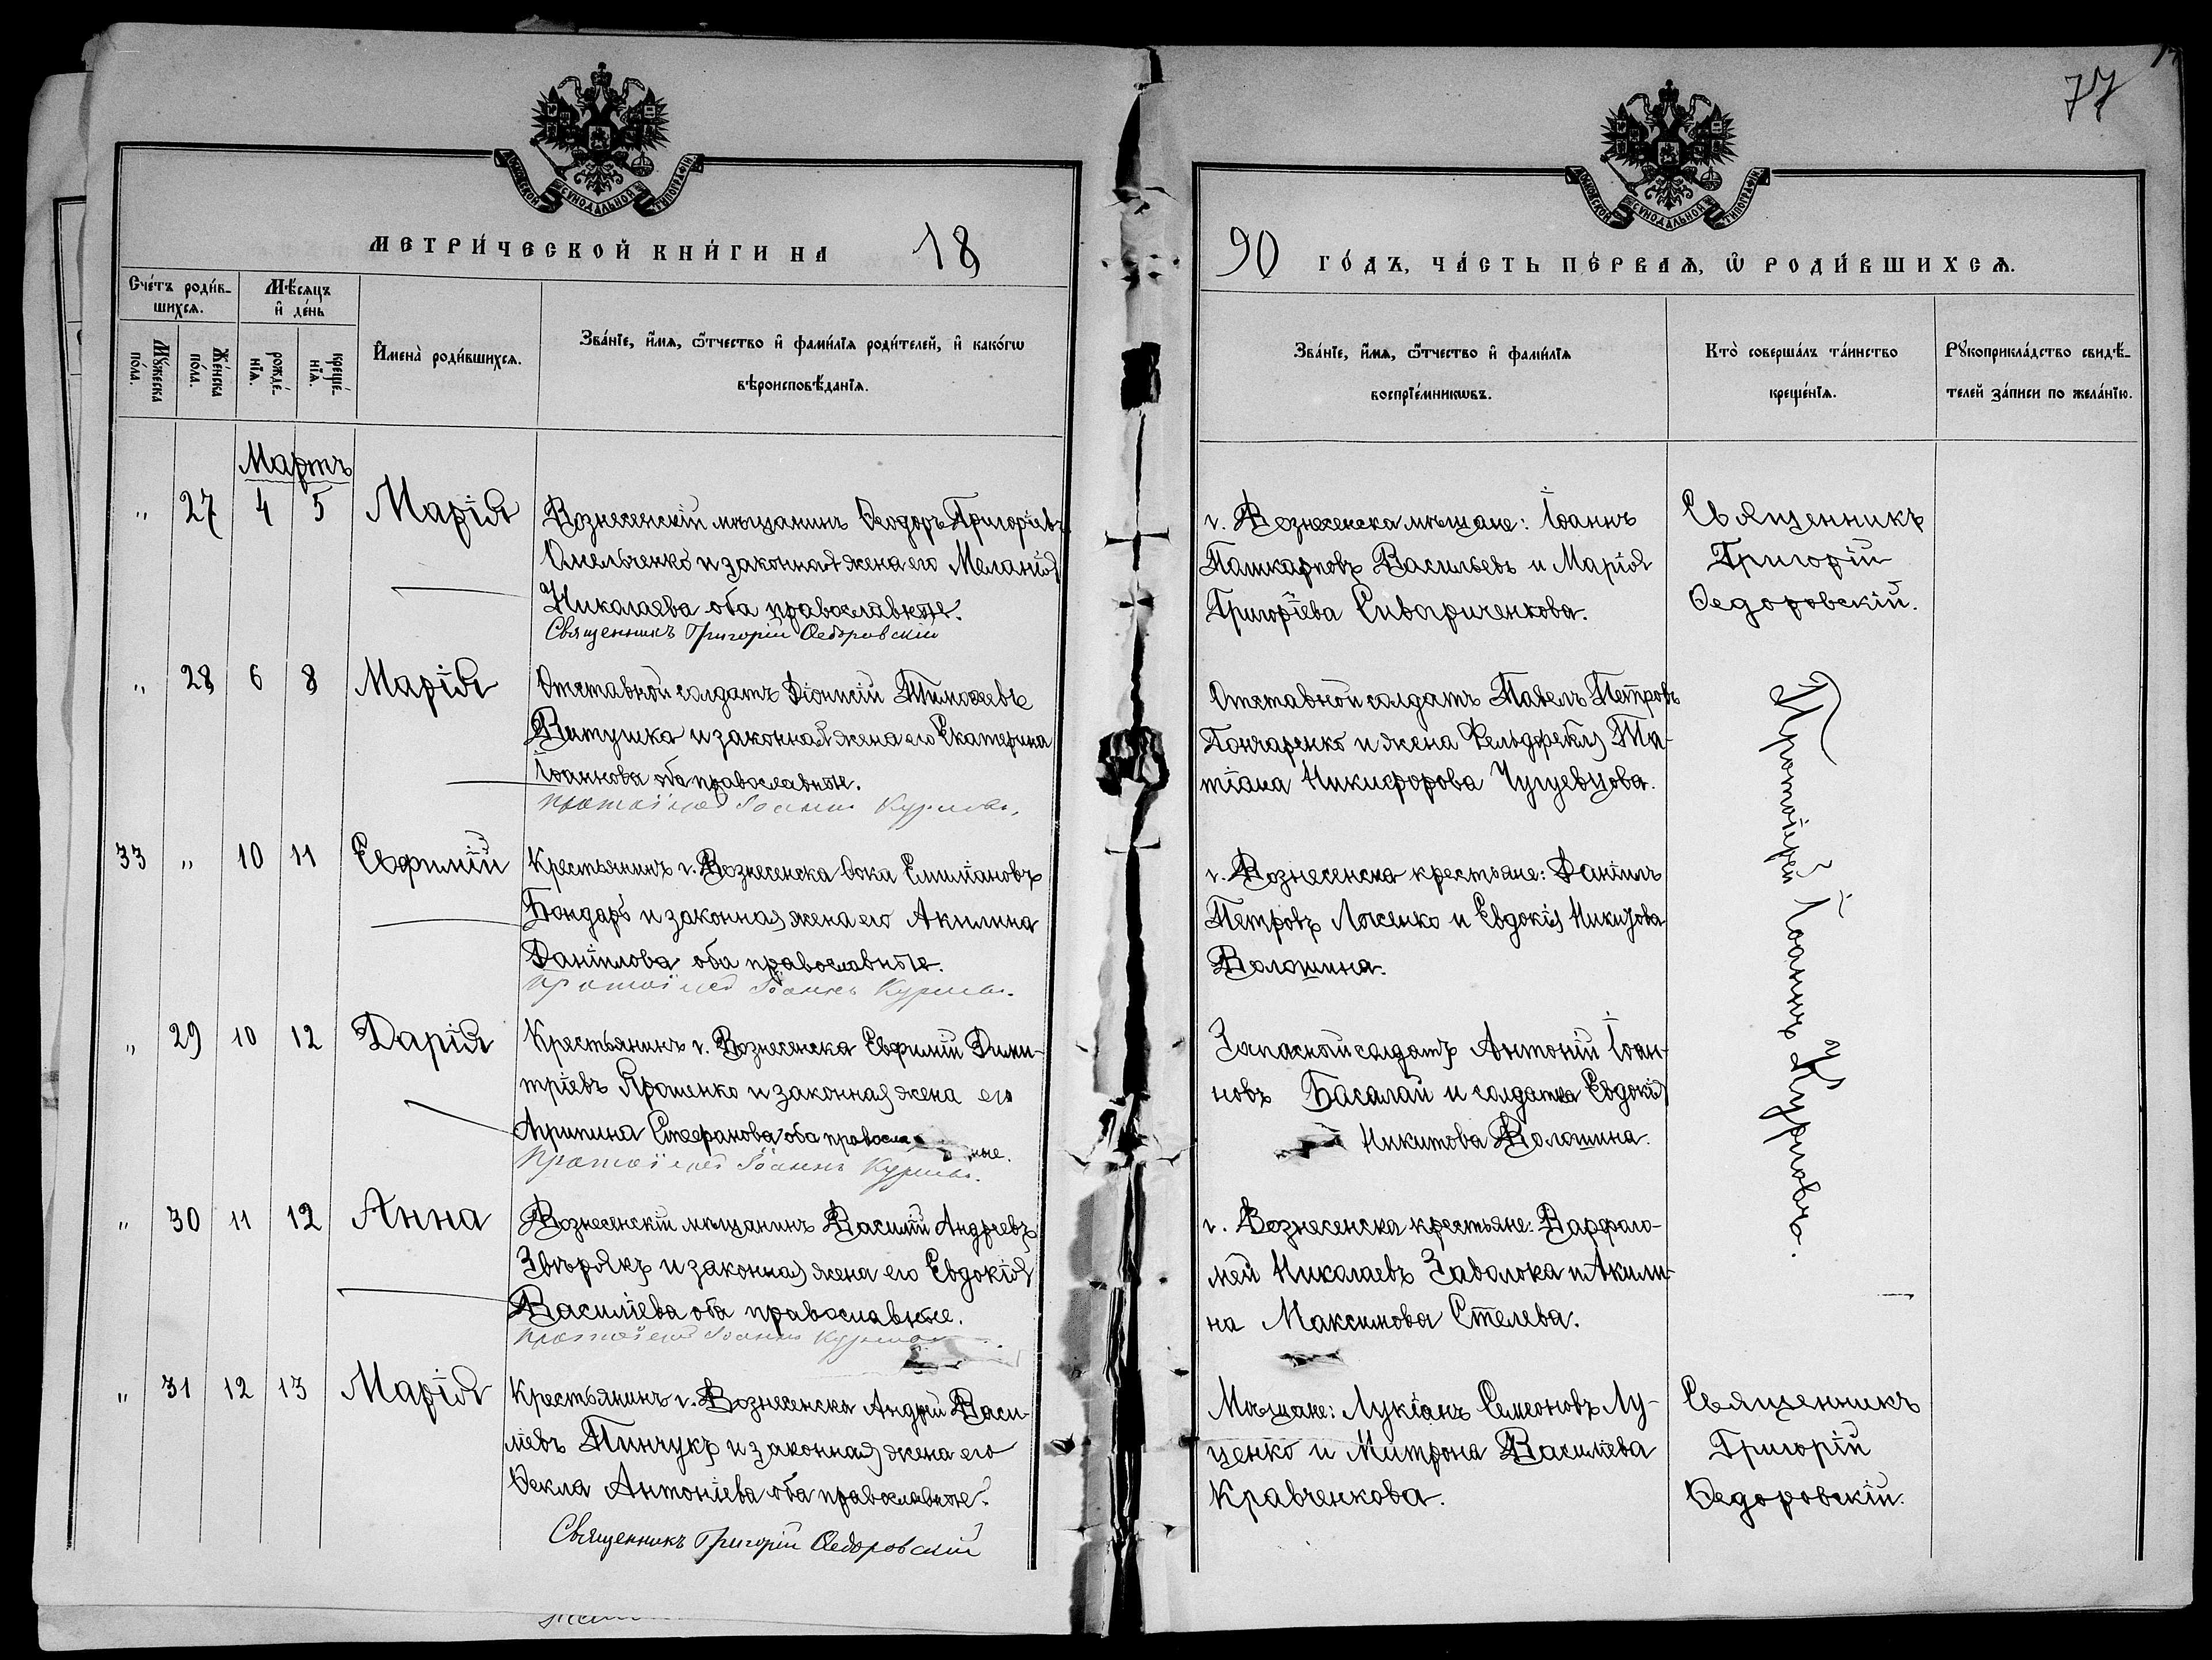 77
МОСКОВСКОЙ СѴНОДАЛЬНОЙ ТИПОГРАФІИ
МЕТРИ́ЧЕСКОЙ КНИ́ГИ НА 18
МОСКОВСКОЙ СѴНОДАЛЬНОЙ ТИПОГРАФІИ
90 ГО́ДЪ, ЧА́СТЬ ПЕ́РВАѦ, Ѡ РОДИ́ВШИХСѦ.
Сче́тъ роди́в-
шихсѧ.
Мѣ́сѧцъ
и҆ де́нь
Мꙋ́жеска
по́ла.
Же́нска
по́ла.
рожде́-
нїѧ.
креще́-
нїѧ.
И҆мена̀ роди́вшихсѧ.
Зва́нїе, и҆́мѧ, ѻ҆́тчество и҆ фами́лїѧ роди́телей, и҆ како́гѡ
вѣроисповѣ́данїѧ.
Зва́нїе, и҆́мѧ, ѻ҆́тчество и҆ фами́лїѧ
воспрїе́мникѡвъ.
Кто̀ соверша́лъ та́инство
креще́нїѧ.
Рꙋкоприкла́дство свидѣ́-
телей за́писи по жела́нїю.
Мартъ
" 27 4 5 Марія
Вознесенскій мѣщанинъ Ѳеодоръ Григоріевъ
Омельченко и законная жена его Меланія
Николаева оба православные.
Священникъ Григорій Ѳедоровскій
г. Вознесенска мѣщане: Іоаннъ
Васильевъ и Марія
Григоріева
Священникъ
Григорій
Ѳедоровскій.
" 28 6 8 Марія
Отставной солдатъ Діонисій Тимоѳеевъ
Витушка и законная жена его Екатерина
Іоаннова оба православные.
Протоіерей Іоаннъ Курловъ.
Отставной солдатъ Павелъ Петровъ
Гончаренко и жена Фельдфебля Та-
тіана Никифорова Чугуевцова.
Протоіерей Іоаннъ Курловъ.
33 " 10 11 Евфимій
Крестьянинъ г. Вознесенска Ѳока Емиліановъ
Бондарь и законная жена его Акилина
Даніилова оба православные.
Протоіерей Іоаннъ Курловъ.
г. Вознесенска крестьяне: Даніилъ
Петровъ и Евдокія Никитова
Волошина.
" 29 10 12 Дарія
Крестьянинъ г. Вознесенска Евфимій Дими-
тріевъ Ярошенко и законная жена его
Агрипина Стефанова оба православные.
Протоіерей Іоаннъ Курловъ.
Запасной солдатъ Антоній Іоан-
новъ Басалай и солдатка Евдокія
Никитова Волошина.
" 30 11 12 Анна
Вознесенскій мѣщанинъ Василій Андреевъ
Звѣрякъ и законная жена его Евдокія
Василіева оба православные.
Протоіерей Іоаннъ Курловъ.
г. Вознесенска крестьяне: Варфоло-
мей Николаевъ Заволока и Акили-
на Максимова Стелева.
" 31 12 13 Марія
Крестьянинъ г. Вознесенска Андрей Васи-
ліевъ Пинчукъ и законная жена его
Ѳекла Антоніева оба православные.
Священникъ Григорій Ѳедоровскій
Мѣщане: Лукіанъ Семеоновъ Лу-
ценко и Митрона Василіева
Кравченкова.
Священникъ
Григорій
Ѳедоровскій.